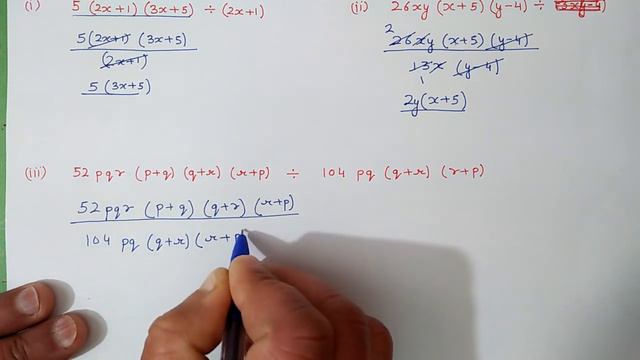 (i) 5 (2x+1) (3x+5) ÷ (2x+1)
5 (2x+1) (3x+5)
(2x+1)
5 (3x+5)
(ii) 26xy (x+5) (y-4) ÷
2
26xy (x+5) (y-4)
13x (y-4)
1
2y(x+5)
(iii) 52 pqr (p+q) (q+r) (r+p) ÷ 104 pq (q+r) (r+p)
52 pqr (p+q) (q+r) (r+p)
104 pq (q+r) (r+p